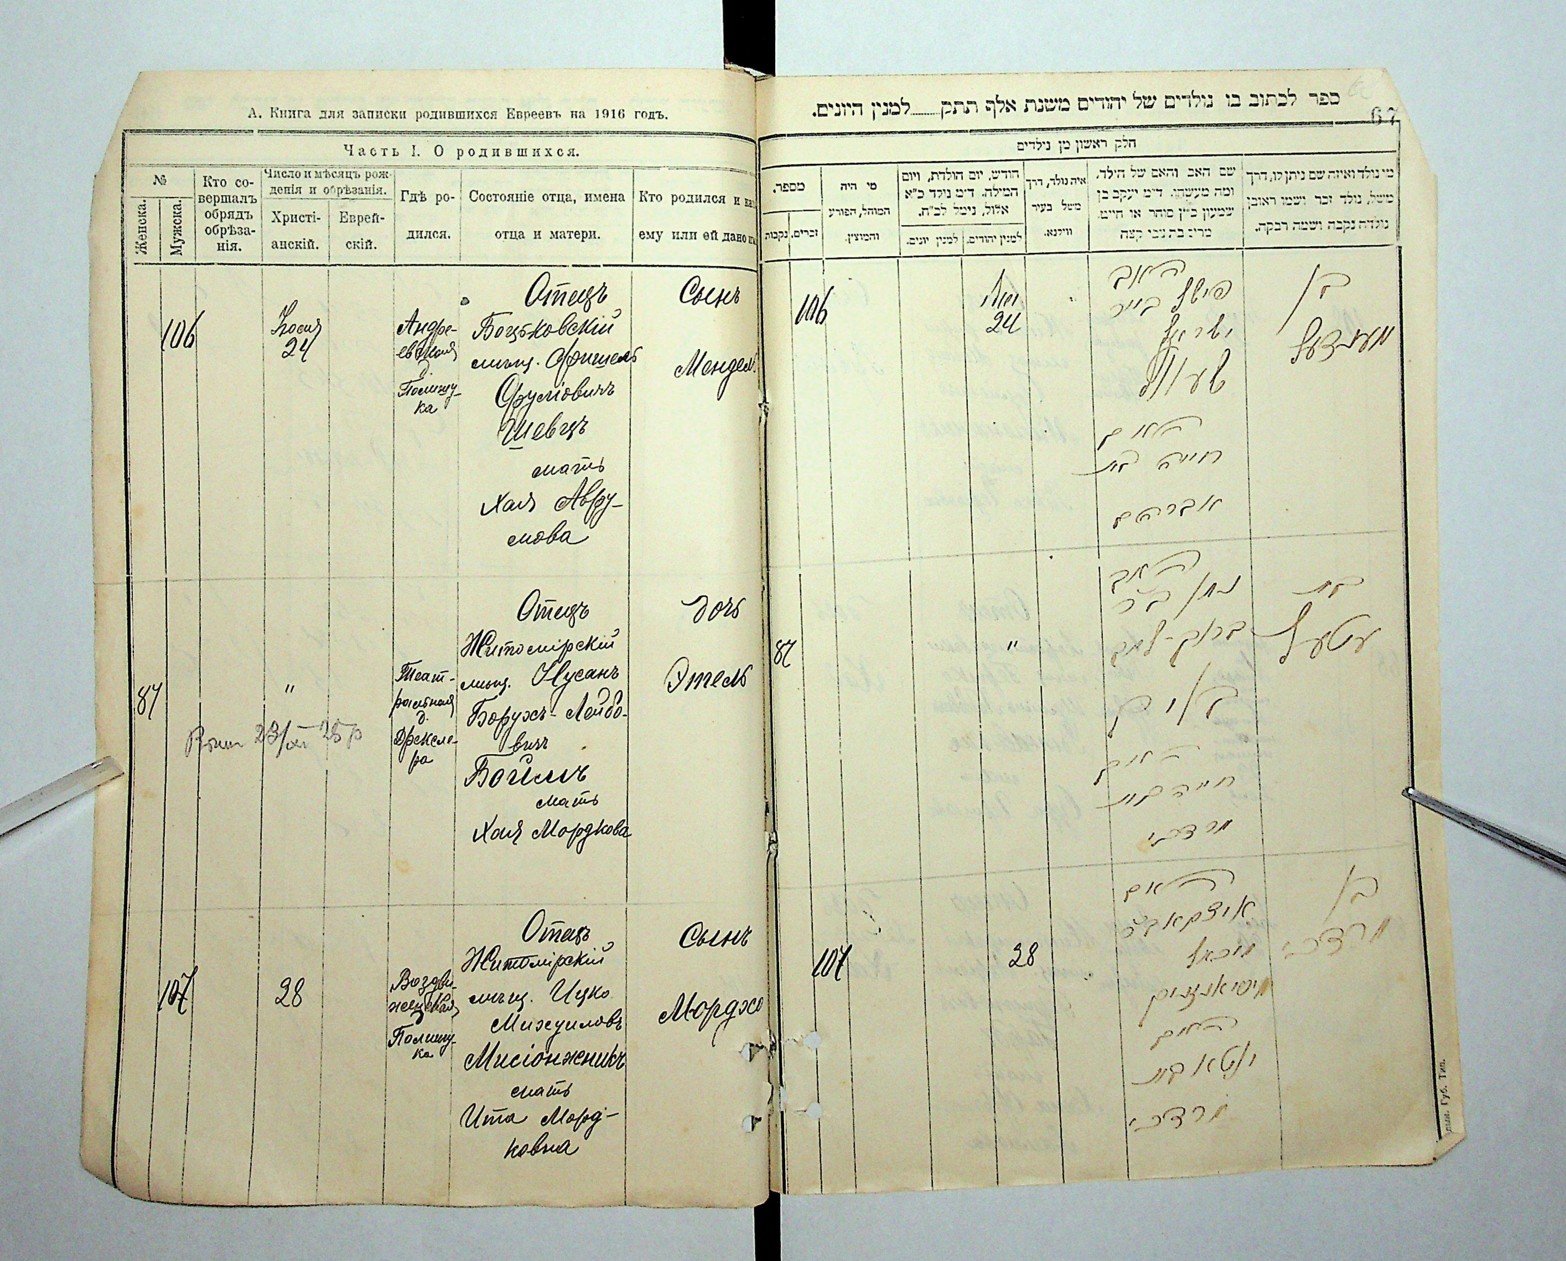 А. Книга для записки родившихся Евреевъ на 1916 годъ.
Часть I. О родившихся.
№
Женска.
Мужска.
Кто со-
вершалъ
обрядъ
обрѣза-
нія.
Число и мѣсяцъ рож-
денія и обрѣзанія.
Христі-
анскій.
Еврей-
скій.
Гдѣ ро-
дился.
Состояніе отца, имена
отца и матери.
Кто родился и ка
ему или ей дано
106
24
Андре-
евская
д.
Полищу-
ка
Отецъ
Боцьковскій
мѣщ. Фишель
Фруміовичъ
Шевцъ
мать
Хая Авру-
мова
Сынъ
Мендель
87
"
23/XI 25 р
Театр-
ральная
д.
Дрексле-
ра
Отецъ
Житомірскій
мѣщ. Нусанъ
Борухъ-Лейбо-
вичъ
Боймъ
мать
Хая Мордкова
дочь
Этель
107
28
Воздви-
женская
Полищу-
ка
Отецъ
Житомірскій
мѣщ. Ицко
Михуиловъ
Мисіонжникъ
мать
Ита Морд-
ковна
Сынъ
Мордко
ספר לכתוב בו נולדים של יהודים משנת אלף תתק......למנין היונים.
67
חלק ראשון מן נילדים
מספר.
זכרים.
נקבות
מי היה
המוהל, הפורע
והמוצץ.
חודש, יום הולדת, ויום
המילה. ד״מ נולד כ״א
אלול, נימל לכ״ח.
למנין יונים.
למנין יהודים.
איה נולד, דרך
משל בעיר
ווילנא.
שם האב והאם של הילד,
ומה מעשהו. ד״מ יעקב בן
שמעון כ״ץ סוחר או חייט.
מרים בת צבי קצה
מי נולד ואיזה שם ניתן לו, דרך
משל, נולד זכר ושמו ראובן
נולדה נקבה ושמה רבקה.
106
24
האב
האם
חייה בת
אברהם
בן
מענדל
87
"
האב
נתן ב״ר
ברוך-לייב
בוים
האם
חייה בת
מרדכי
בת
עטעל
107
28
מיכאל
האם
מרדכי
בן
מרדכי
Губ. Тип.